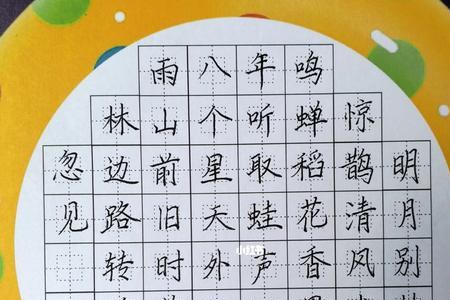 明月别
惊鹊清风
鸣蝉稻花香
年听取蛙声
八个星天外
雨山前旧时
林边路转
忽见